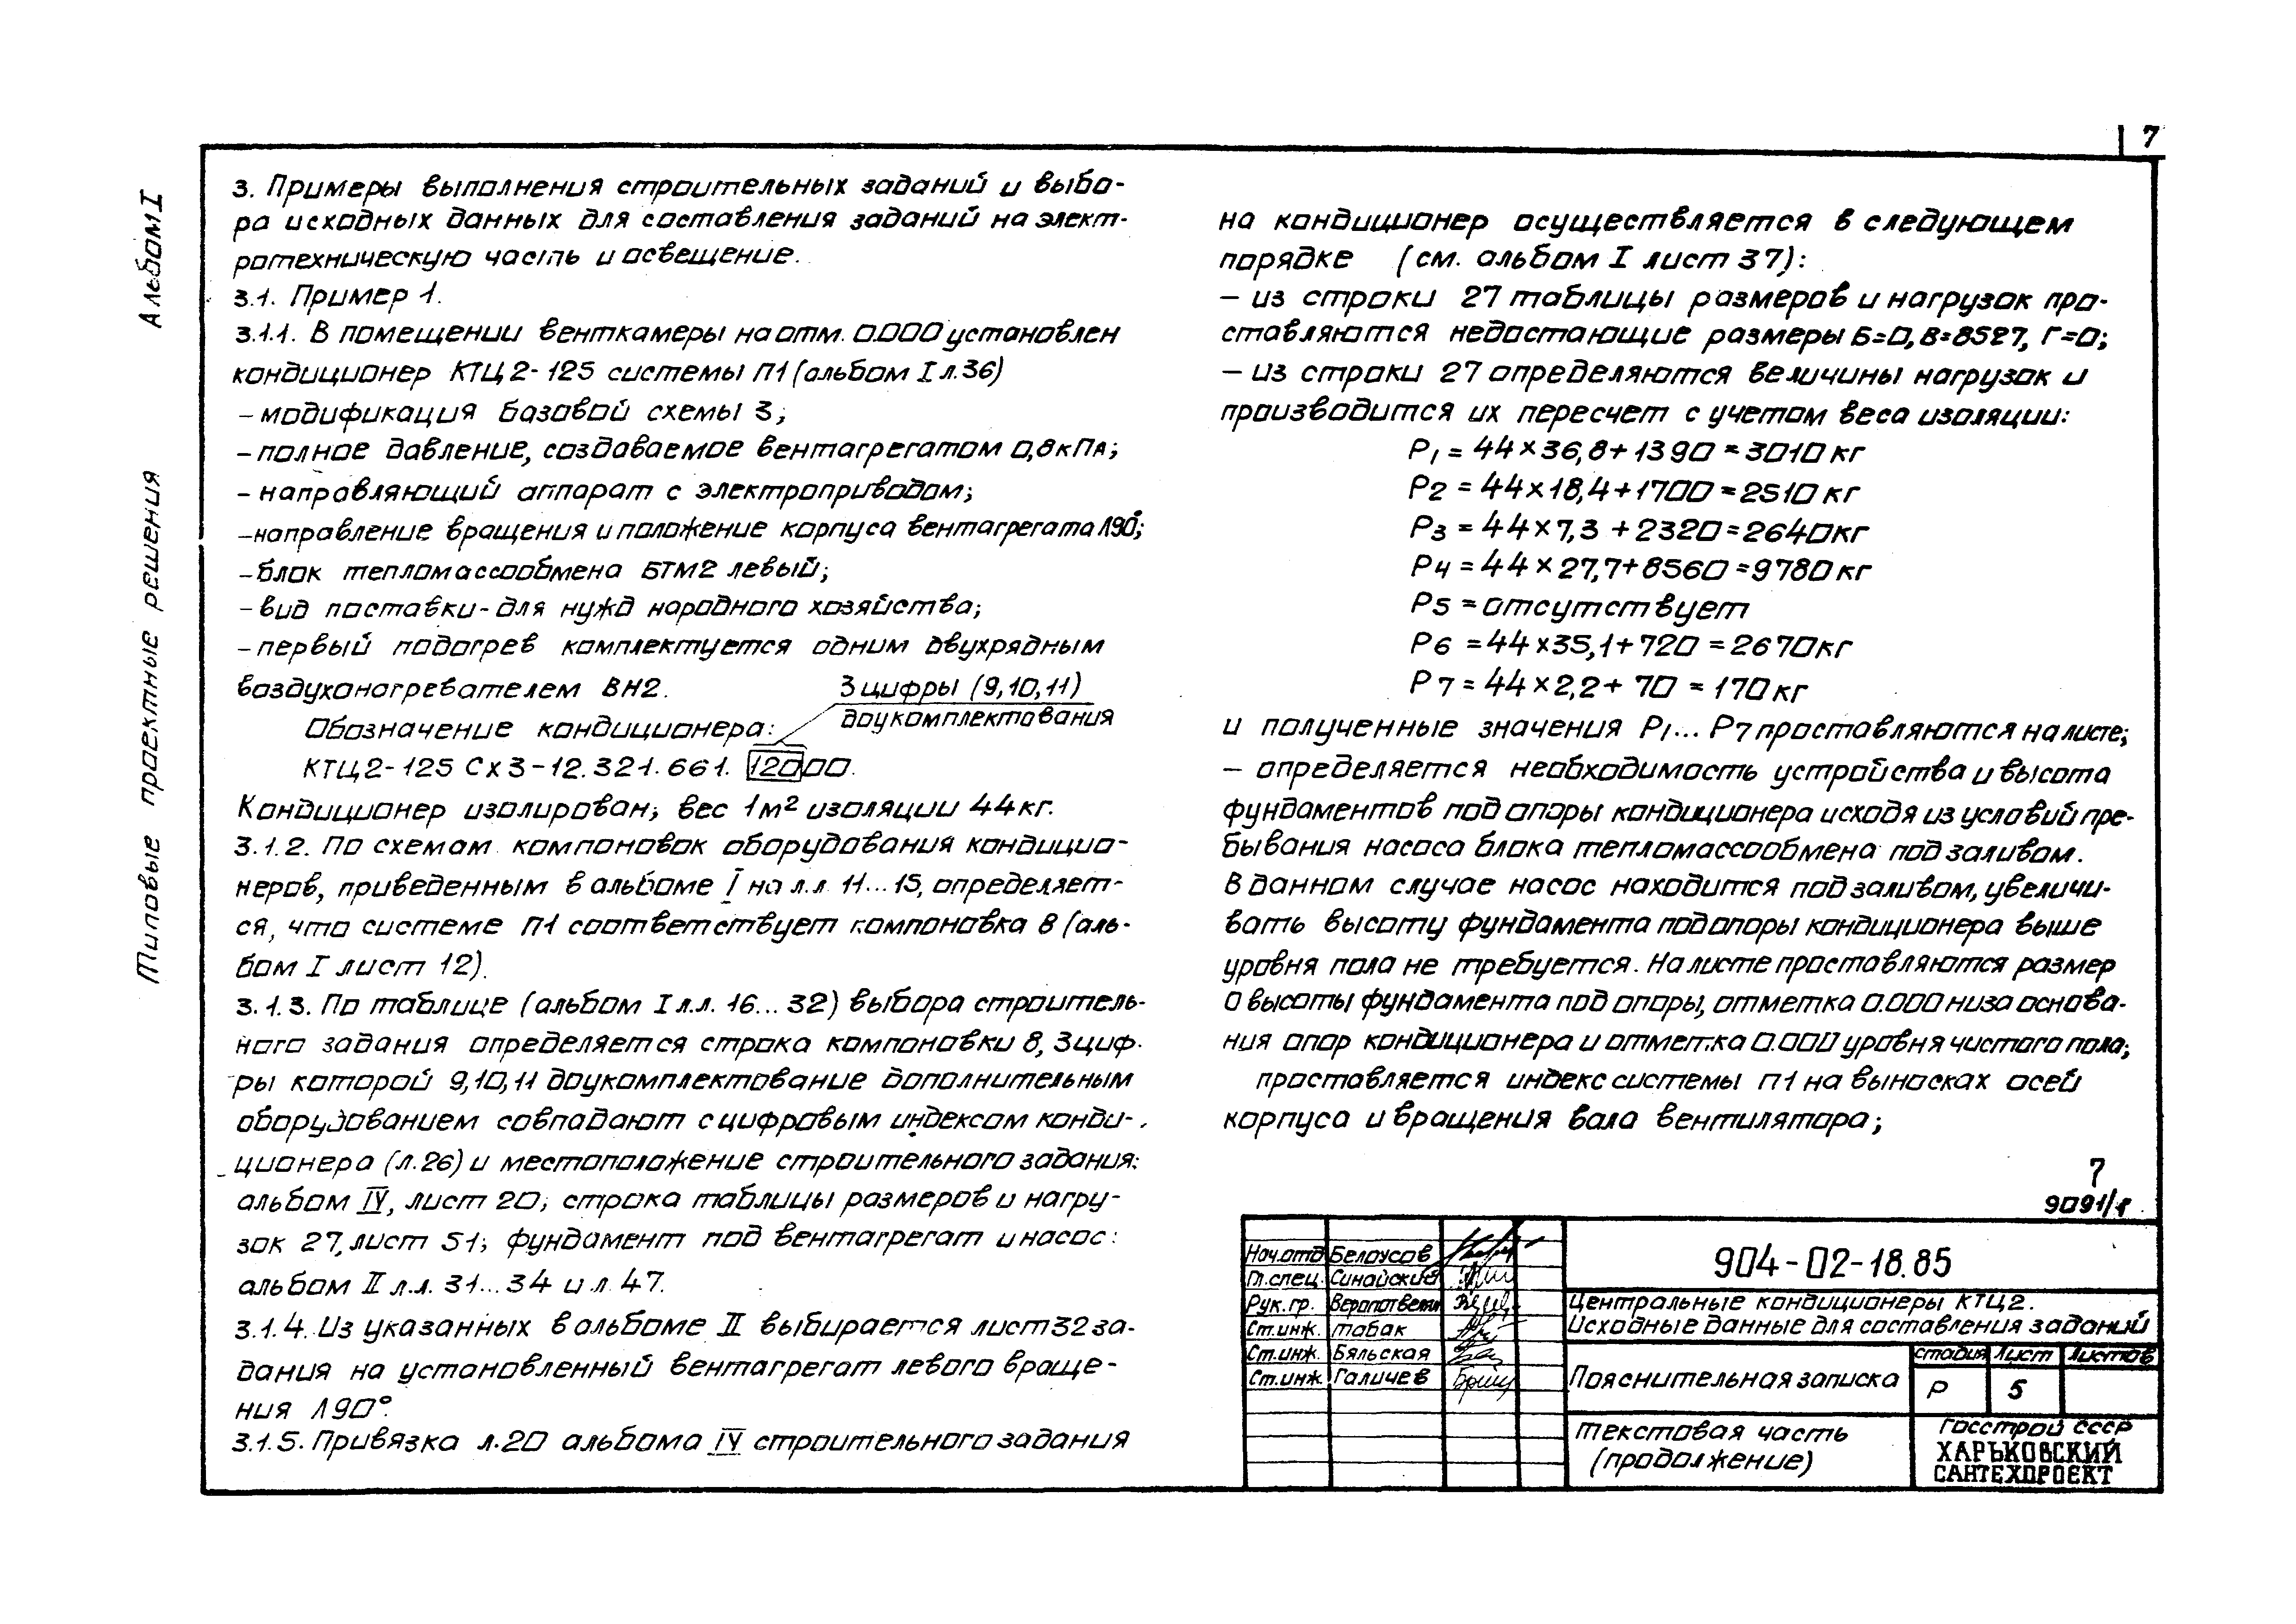 7
Альбом I
Типовые проектные решения
3. Примеры выполнения строительных заданий и выбо-
ра исходных данных для составления заданий на элект-
ротехническую часть и освещение.
3.1. Пример 1.
3.1.1. В помещении венткамеры на отм. 0.000 установлен
кондиционер КТЦ2-125 системы П1 (альбом I л.36)
- модификация базовой схемы 3;
- полное давление, создаваемое вентагрегатом 0,8 кПа;
- направляющий аппарат с электроприводом;
- направление вращения и положение корпуса вентагрегата Л90°;
- блок тепломассообмена БТМ2 левый;
- вид поставки - для нужд народного хозяйства;
- первый подогрев комплектуется одним двухрядным
воздухонагревателем ВН2.
3 цифры (9,10,11)
доукомплектования
Обозначение кондиционера:
КТЦ2-125 Сх3-12.321.661. 12000.
Кондиционер изолирован; вес 1м² изоляции 44кг.
3.1.2. По схемам компоновок оборудования кондицио-
неров, приведенным в альбоме I на л.л. 11...15, определяет-
ся, что системе П1 соответствует компоновка 8 (аль-
бом I лист 12).
3.1.3. По таблице (альбом I л.л. 16...32) выбора строитель-
ного задания определяется строка компоновки 8, 3 циф-
ры которой 9,10,11 доукомплектование дополнительным
оборудованием совпадают с цифровым индексом конди-
ционера (л.26) и местоположение строительного задания:
альбом IV, лист 20; строка таблицы размеров и нагру-
зок 27, лист 51; фундамент под вентагрегат и насос:
альбом II л.л. 31...34 и л. 47.
3.1.4. Из указанных в альбоме II выбирается лист 32 за-
дания на установленный вентагрегат левого враще-
ния Л90°.
3.1.5. Привязка л.20 альбома IV строительного задания
на кондиционер осуществляется в следующем
порядке (см. альбом I лист 37):
- из строки 27 таблицы размеров и нагрузок про-
ставляются недостающие размеры Б=0, В=8527, Г=0;
- из строки 27 определяются величины нагрузок и
производится их пересчет с учетом веса изоляции:
Р1 = 44×36,8+1390 = 3010 кг
Р2 = 44×18,4+1700 = 2510 кг
Р3 = 44×7,3 + 2320 = 2640кг
Р4 = 44×27,7+8560 = 9780 кг
Р5 = отсутствует
Р6 = 44×35,1+720 = 2670кг
Р7 = 44×2,2+ 70 = 170 кг
и полученные значения Р1...Р7 проставляются на листе;
- определяется необходимость устройства и высота
фундаментов под опоры кондиционера исходя из условий пре-
бывания насоса блока тепломассообмена под заливом.
В данном случае насос находится под заливом, увеличи-
вать высоту фундамента под опоры кондиционера выше
уровня пола не требуется. На листе проставляются размер
0 высоты фундамента под опоры, отметка 0.000 низа основа-
ния опор кондиционера и отметка 0.000 уровня чистого пола;
проставляется индекс системы П1 на выносках осей
корпуса и вращения вала вентилятора;
7
9091/1
Нач.отд Белоусов
Гл.спец. Синайский
Рук.гр.
Ст.инж. Табак
Ст.инж. Бяльская
Ст.инж. Галичев
904-02-18.85
Центральные кондиционеры КТЦ2.
Исходные данные для составления заданий
Пояснительная записка
стадия Лист Листов
Р 5
Текстовая часть
(продолжение)
Госстрой СССР
ХАРЬКОВСКИЙ
САНТЕХПРОЕКТ